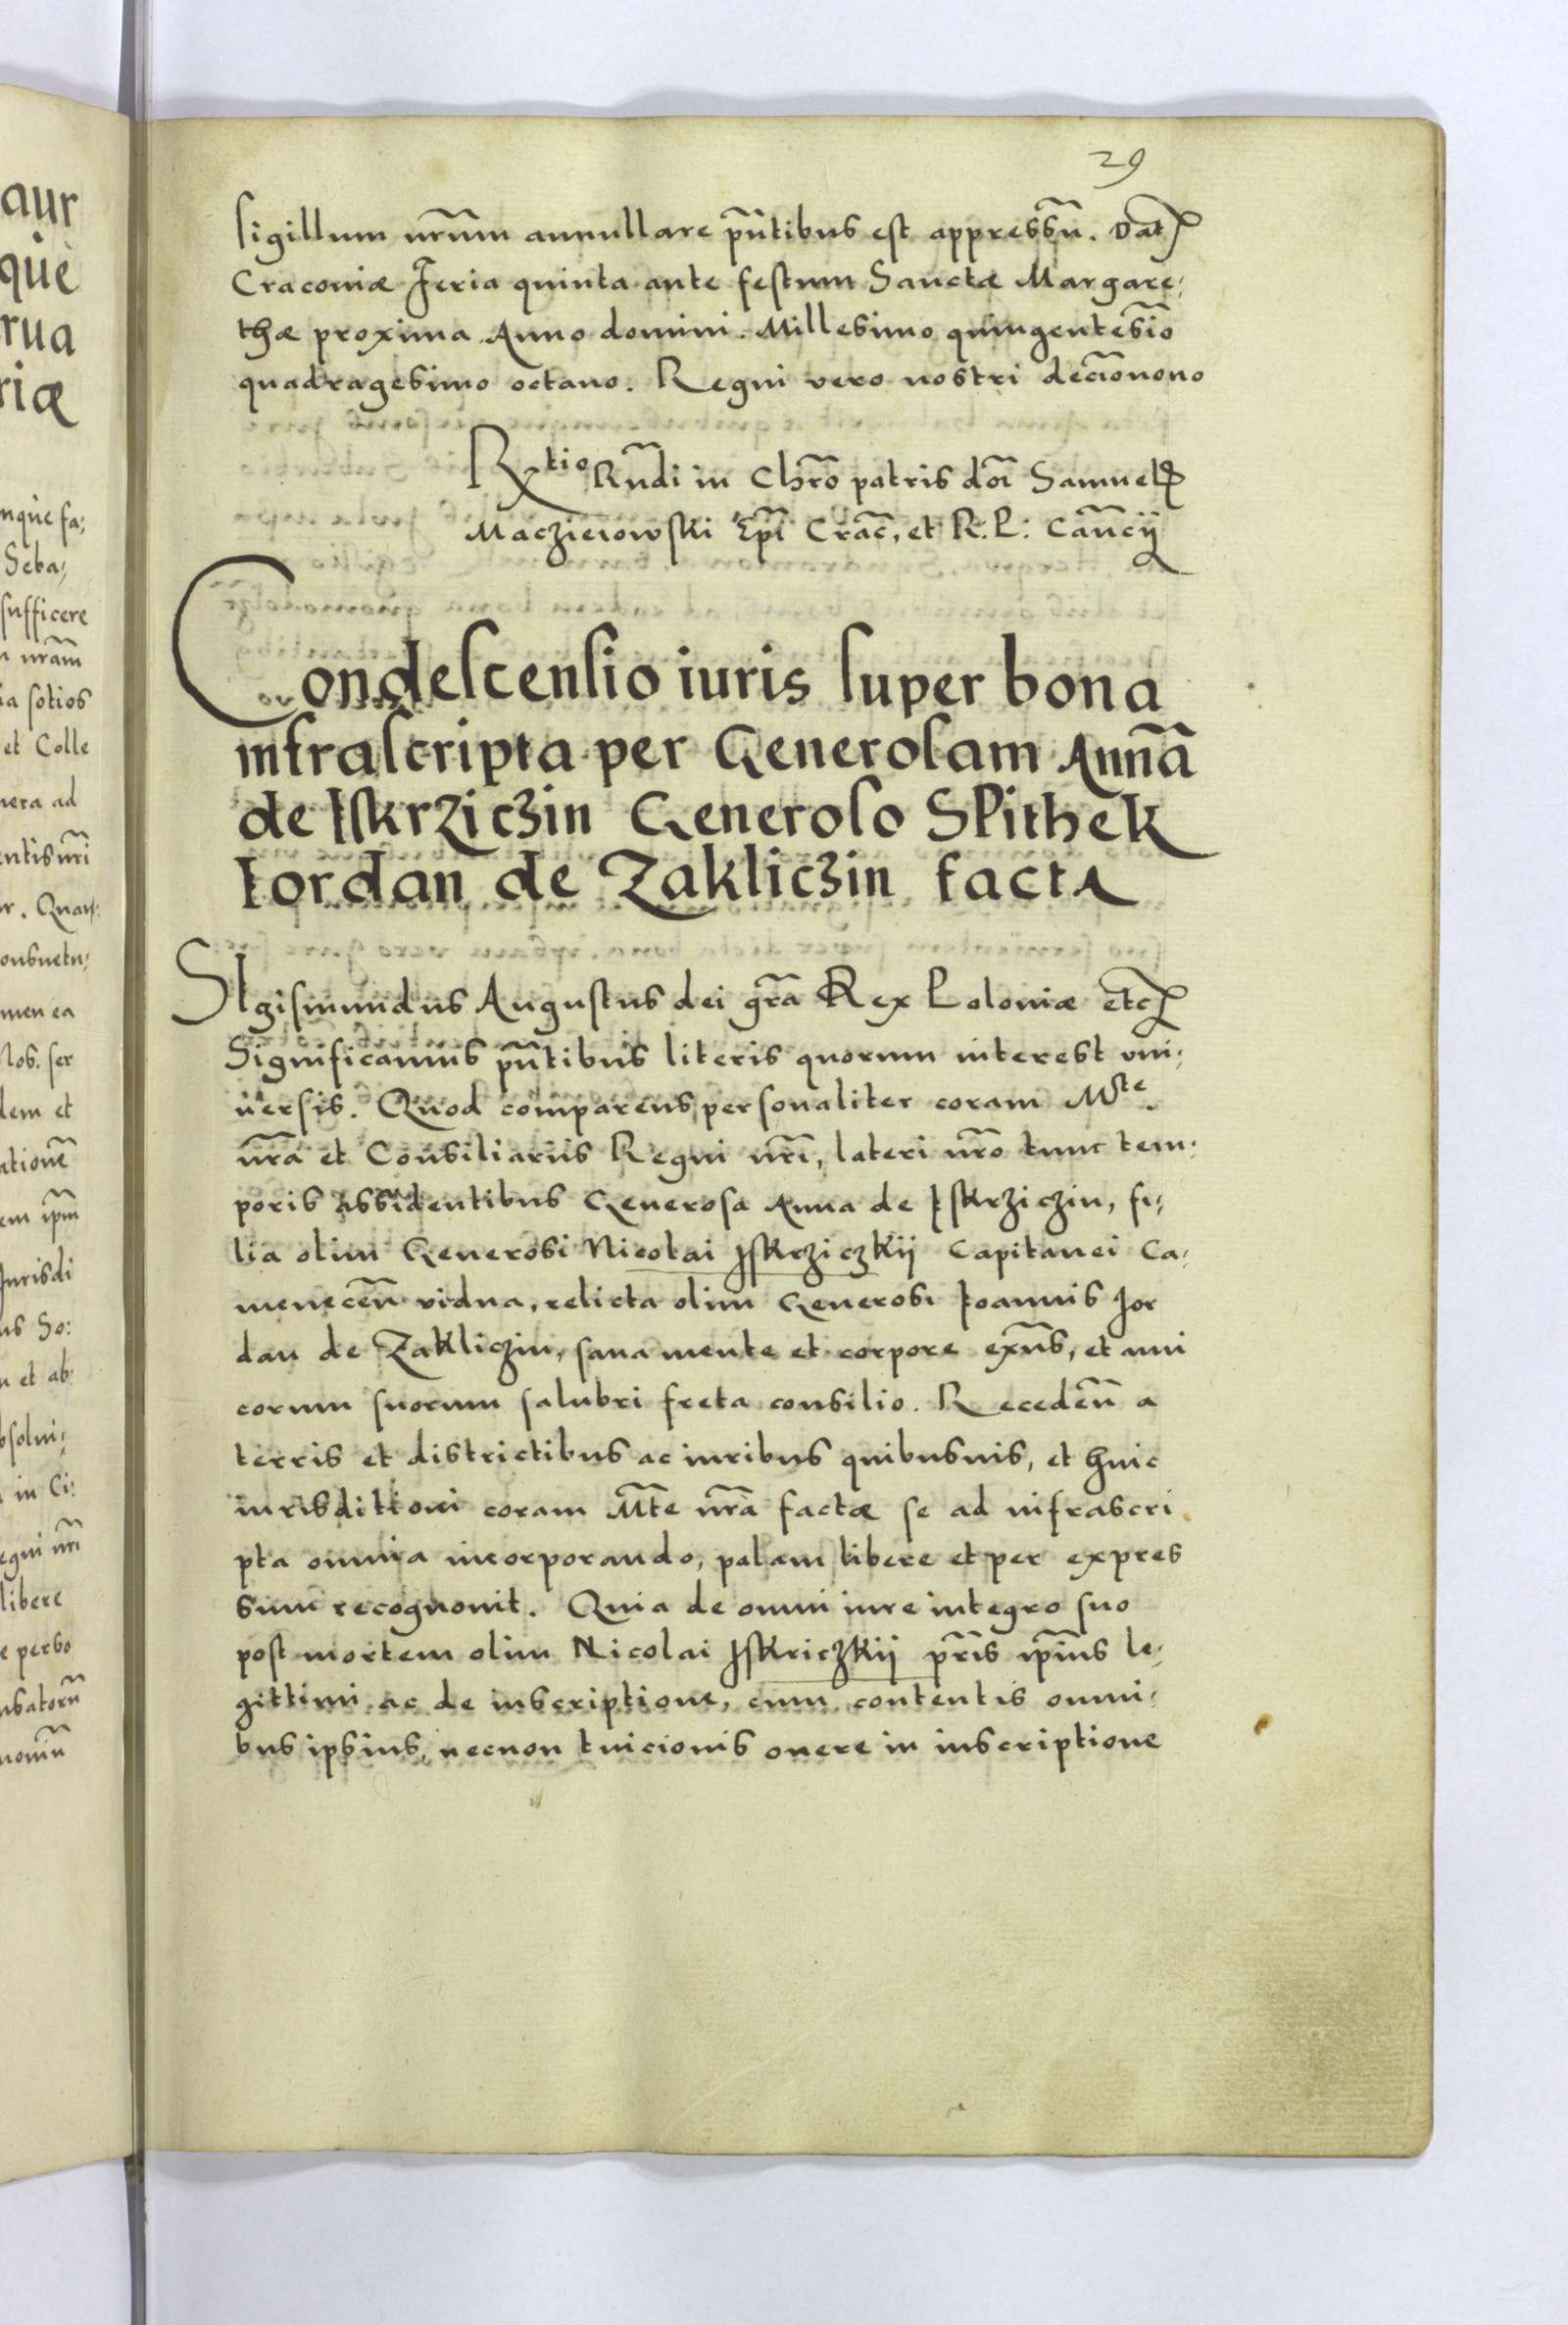 29
sigillum nr̃um annullare pñtibus est appressũ. Dat̃
Cracoviæ Feria quinta ante festum Sanctæ Margare,
thæ proxima Anno domini. Millesimo quingentesĩo
quadragesimo octavo. Regni vero nostri decĩonono
Rtio Rñdi in Chr̃o patris doĩ Samuel
Maczieiowski Ep̃i Crac̃, et R. P: Cañcij
Condescensio iuris super bona
infrascripta per Generosam Annã
de Iskrziczin Generoso SPithek
Iordan de Zakliczin facta
SIgismundus Augustus dei gr̃a Rex Poloniæ etc̃
Significamus pñtibus literis quorum interest uni,
versis. Quod comparens personaliter coram Mste.
nr̃a et Consiliariis Regni nr̃i, lateri nr̃o tunc tem,
poris assidentibus Generosa Anna de Iskrziczin, fi,
lia olim Generosi Nicolai Iskrziczkij Capitanei Ca,
menecen̄ vidua, relicta olim Generosi Ioannis Ior
dan de Zakliczin, sana mente et corpore exñs, et ami
corum suorum salubri freta consilio. Receden̄ a
terris et districtibus ac iuribus quibusvis, et huic
iurisdittioni coram Mt̃e nr̃a factæ se ad infrascri
pta omnia incorporando, palam libere et per expres
sum recognovit. Quia de omni iure integro suo
post mortem olim Nicolai Iskriczkij pr̃is ip̃ius le,
gittimi ac de inscriptione, cum contentis omni,
bus ipsius, necnon tuicionis onere in inscriptione
aur
què
rua
riæ
nquè fa,
Seba,
sufficere
nr̃am
ia sotios
et Colle
nera ad
entis nr̃i
r. Quar
onsuetu,
men ea
Nos. ser
dem et
ationẽ
em ip̃m
Iurisdi
us So:
n et ab
bsolui,
in Ci:
egni nr̃i
libere
e perbo
nsatorũ